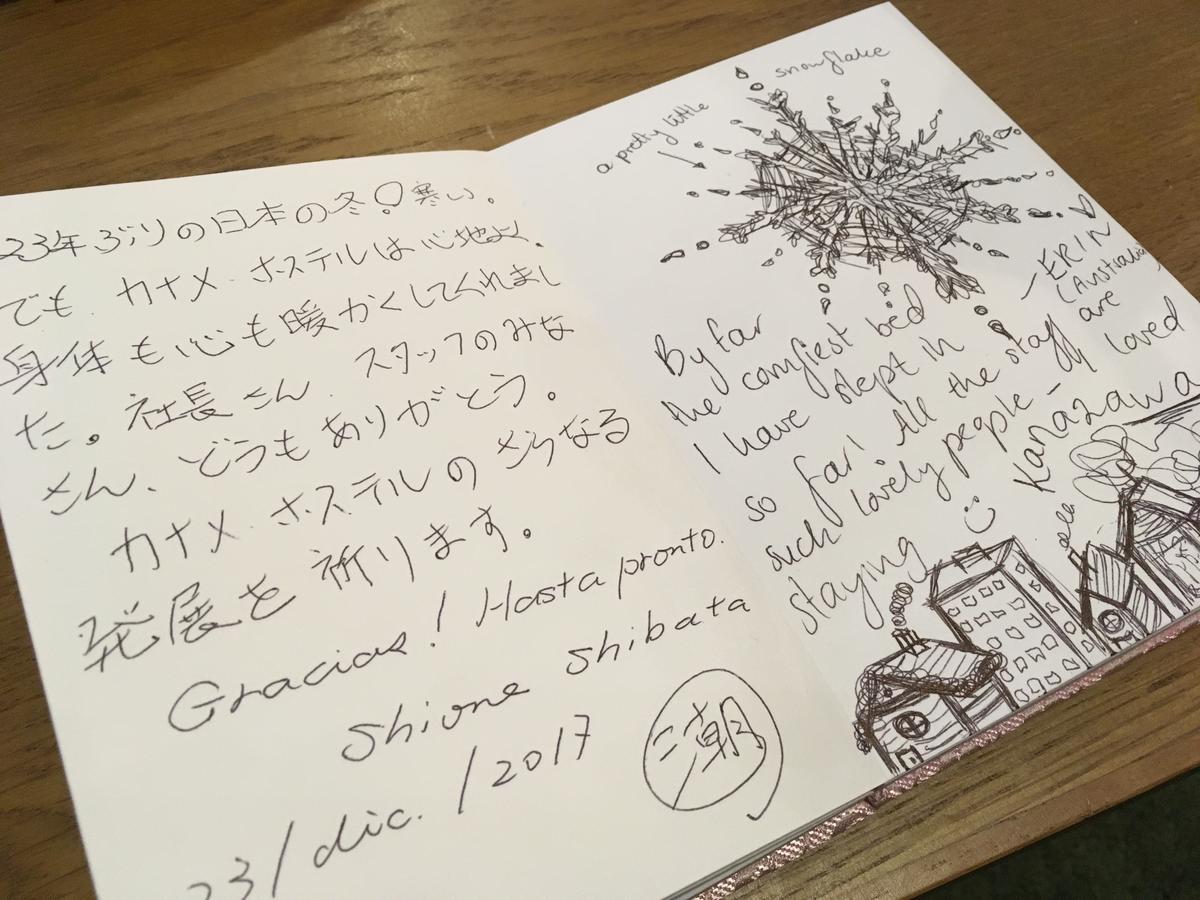 23年ぶりの日本の冬！寒い。
でも カナメ・ホステルは心地よく、
身体も心も暖かくしてくれまし
た。社長さん、スタッフのみな
さん、どうもありがとう。
カナメ・ホステルのさらなる
発展を祈ります。
Gracias! Hasta pronto.
Shione Shibata
23/dic./2017
潮
a pretty little
snowflake
By far
the comfiest bed
I have slept in
so far! All the staff are
such lovely people - loved
staying Kanazawa
- ERIN
(Australia)